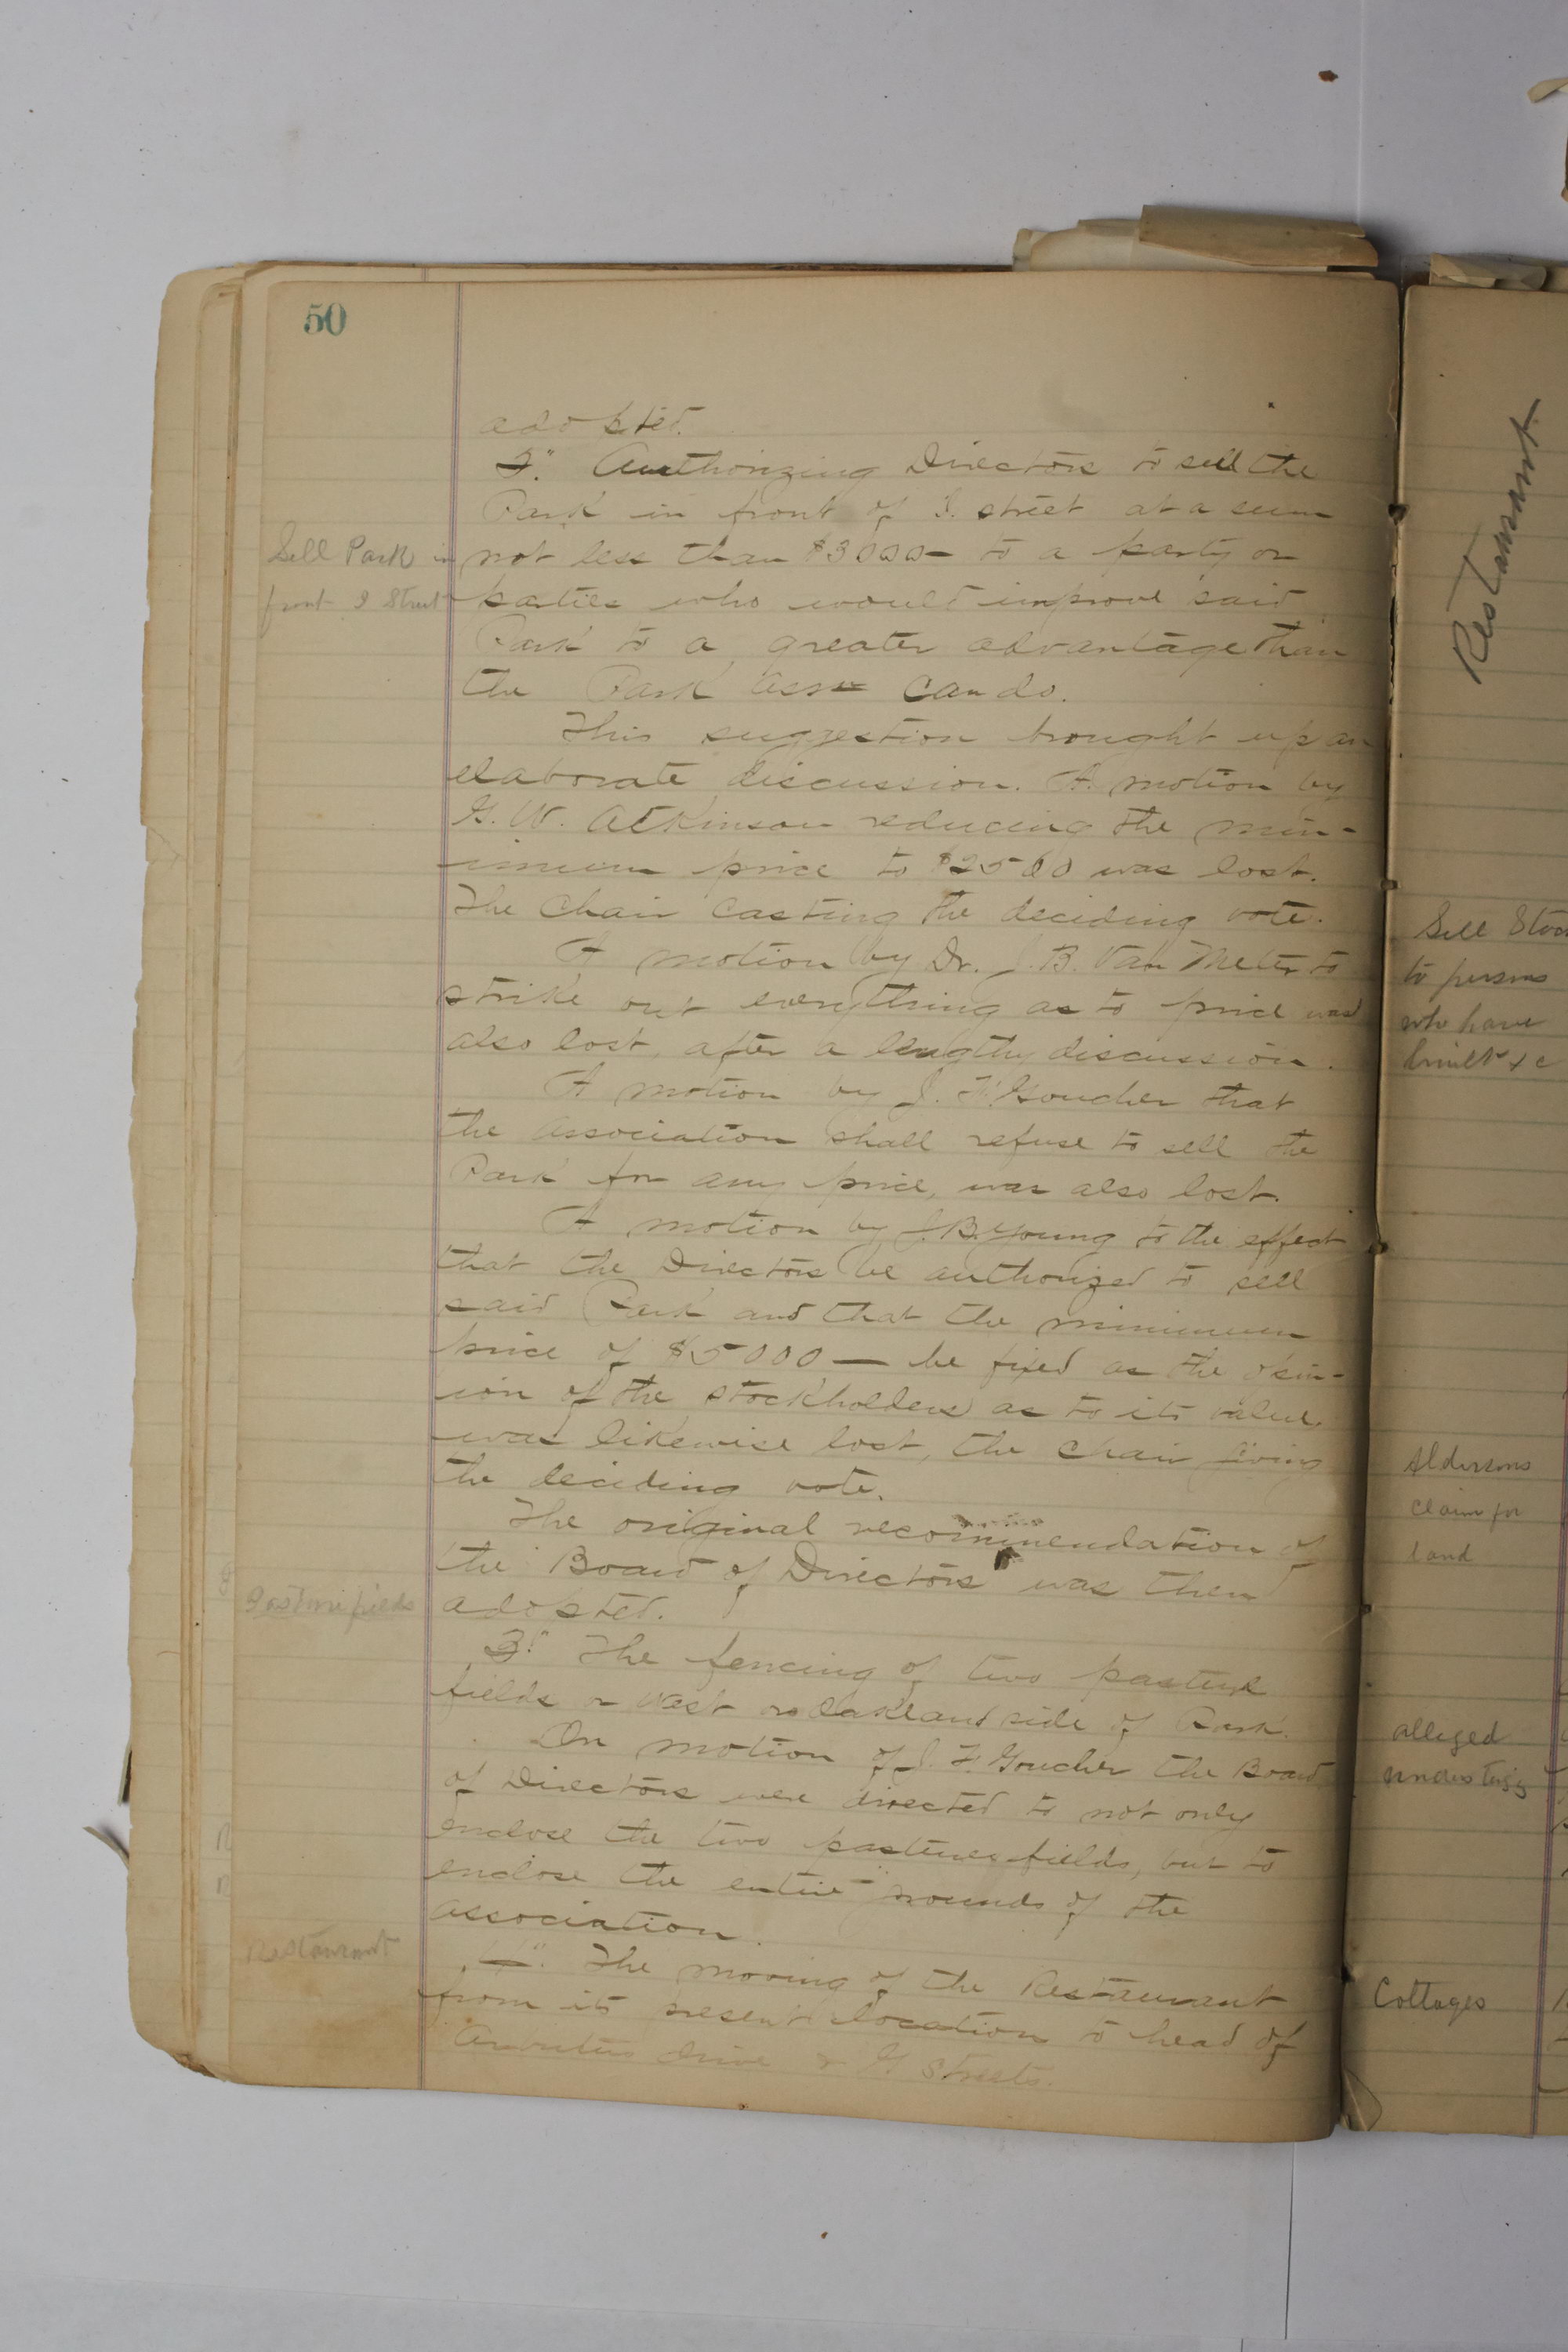 50
adopted.
2". Authorizing Directors to sell the
Park in front of I. street at a sum
Sell Park in
front I Street
not less than $3000— to a party or
parties who would improve said
Park to a greater advantage than
the Park Assn can do.
This suggestion brought up an
elaborate discussion. A motion by
G. W. Atkinson reducing the min-
imum price to $2500 was lost.
The Chair casting the deciding vote.
A motion by Dr. J. B. Van Meter to
strike out everything as to price was
also lost, after a lengthy discussion.
A motion by J. F. Goucher that
the Association shall refuse to sell the
Park for any price, was also lost.
A motion by J. B. Young to the effect
that the Directors be authorized to sell
said Park and that the minimum
price of $5000— be fixed as the opin-
ion of the stockholders as to its value,
was likewise lost, the chair giving
the deciding vote.
The original recommendation of
the Board of Directors was then
adopted.
Pasture fields
3". The fencing of two pasture
fields on West or Oakland side of Park.
On motion of J. F. Goucher the Board
of Directors were directed to not only
enclose the two pasture fields, but to
enclose the entire grounds of the
association.
Restaurant
4". The moving of the Restaurant
from its present location to head of
Arbutus drive & G. Streets.
Restaurant
Sell Stoc
to persons
who have
built & c
Aldersons
claim for
land
alleged
Cottages